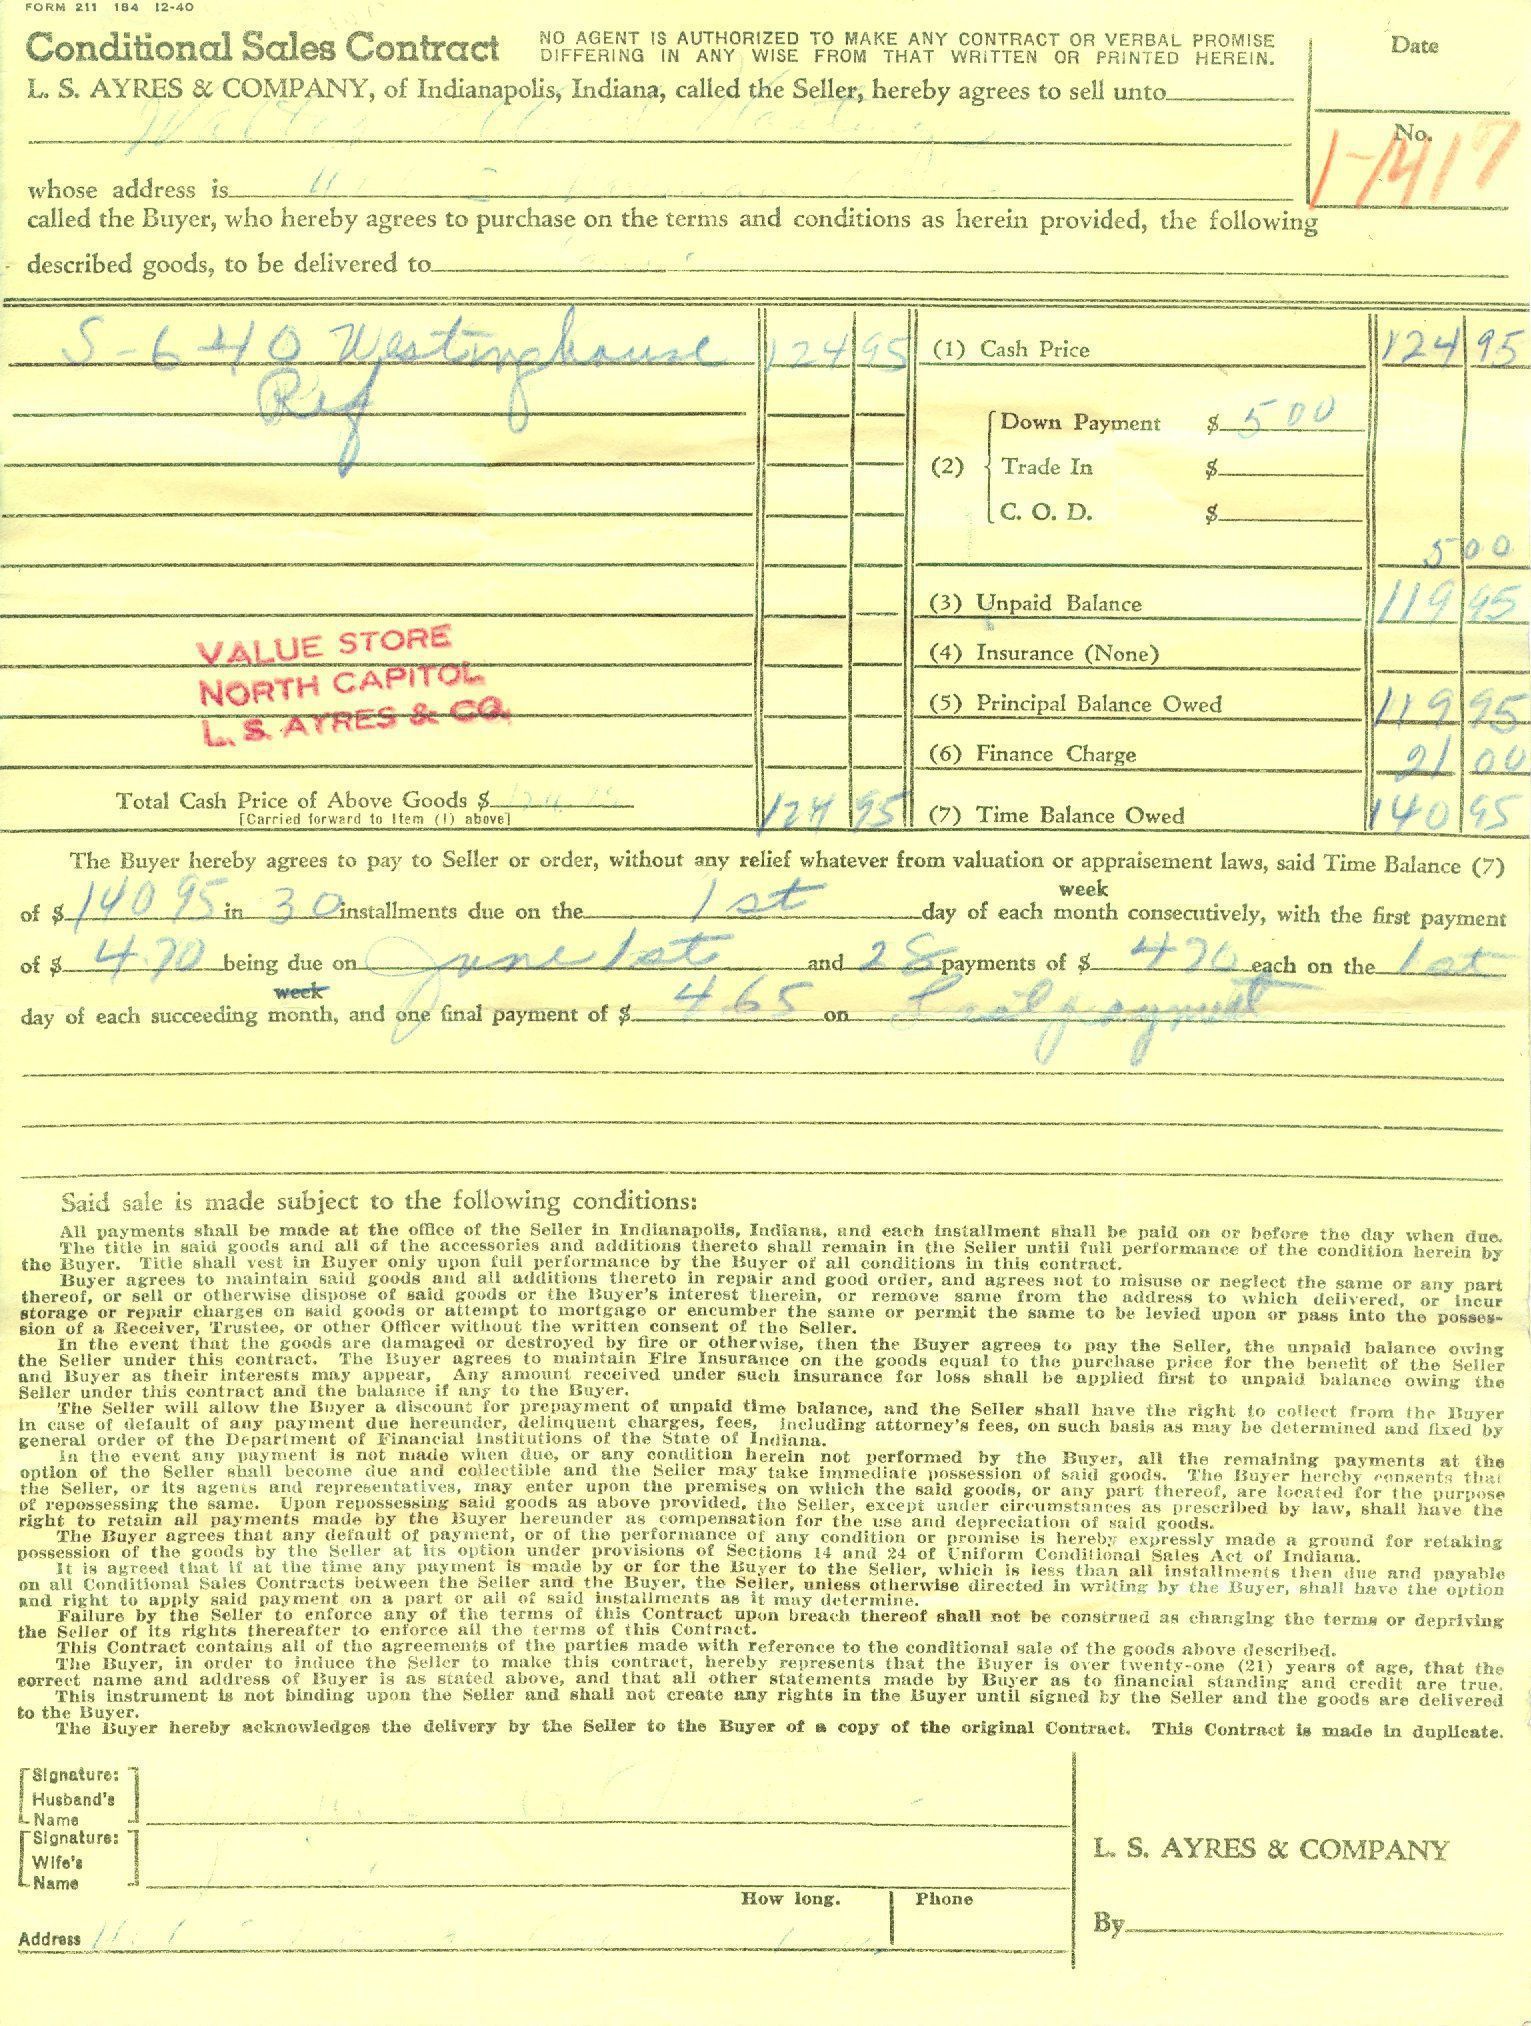 FORM 211 184 12-40
Conditional Sales Contract
NO AGENT IS AUTHORIZED TO MAKE ANY CONTRACT OR VERBAL PROMISE
DIFFERING IN ANY WISE FROM THAT WRITTEN OR PRINTED HEREIN.
Date
L. S. AYRES & COMPANY, of Indianapolis, Indiana, called the Seller, hereby agrees to sell unto
No.
1-1417
whose address is
called the Buyer, who hereby agrees to purchase on the terms and conditions as herein provided, the following
described goods, to be delivered to
S-6-40 Westinghouse 124 95
Ref
(1) Cash Price 124 95
(2) Down Payment $ 5 00
Trade In $
C. O. D. $
5 00
(3) Unpaid Balance 119 95
(4) Insurance (None)
(5) Principal Balance Owed 119 95
(6) Finance Charge 21 00
(7) Time Balance Owed 140 95
VALUE STORE
NORTH CAPITOL
L. S. AYRES & CO.
Total Cash Price of Above Goods $ 124 95
[Carried forward to Item (1) above]
The Buyer hereby agrees to pay to Seller or order, without any relief whatever from valuation or appraisement laws, said Time Balance (7)
week
of $ 140 95 in 30 installments due on the 1st day of each month consecutively, with the first payment
of $ 4.70 being due on June 1st and 28 payments of $ 4 70 each on the 1st
week
day of each succeeding month, and one final payment of $ 4.65 on Last payment
Said sale is made subject to the following conditions:
All payments shall be made at the office of the Seller in Indianapolis, Indiana, and each installment shall be paid on or before the day when due.
The title in said goods and all of the accessories and additions thereto shall remain in the Seller until full performance of the condition herein by
the Buyer. Title shall vest in Buyer only upon full performance by the Buyer of all conditions in this contract.
Buyer agrees to maintain said goods and all additions thereto in repair and good order, and agrees not to misuse or neglect the same or any part
thereof, or sell or otherwise dispose of said goods or the Buyer's interest therein, or remove same from the address to which delivered, or incur
storage or repair charges on said goods or attempt to mortgage or encumber the same or permit the same to be levied upon or pass into the posses-
sion of a Receiver, Trustee, or other Officer without the written consent of the Seller.
In the event that the goods are damaged or destroyed by fire or otherwise, then the Buyer agrees to pay the Seller, the unpaid balance owing
the Seller under this contract. The Buyer agrees to maintain Fire Insurance on the goods equal to the purchase price for the benefit of the Seller
and Buyer as their interests may appear, Any amount received under such insurance for loss shall be applied first to unpaid balance owing the
Seller under this contract and the balance if any to the Buyer.
The Seller will allow the Buyer a discount for prepayment of unpaid time balance, and the Seller shall have the right to collect from the Buyer
in case of default of any payment due hereunder, delinquent charges, fees, including attorney's fees, on such basis as may be determined and fixed by
general order of the Department of Financial Institutions of the State of Indiana.
In the event any payment is not made when due, or any condition herein not performed by the Buyer, all the remaining payments at the
option of the Seller shall become due and collectible and the Seller may take immediate possession of said goods. The Buyer hereby consents that
the Seller, or its agents and representatives, may enter upon the premises on which the said goods, or any part thereof, are located for the purpose
of repossessing the same. Upon repossessing said goods as above provided, the Seller, except under circumstances as prescribed by law, shall have the
right to retain all payments made by the Buyer hereunder as compensation for the use and depreciation of said goods.
The Buyer agrees that any default of payment, or of the performance of any condition or promise is hereby expressly made a ground for retaking
possession of the goods by the Seller at its option under provisions of Sections 14 and 24 of Uniform Conditional Sales Act of Indiana.
It is agreed that if at the time any payment is made by or for the Buyer to the Seller, which is less than all installments then due and payable
on all Conditional Sales Contracts between the Seller and the Buyer, the Seller, unless otherwise directed in writing by the Buyer, shall have the option
and right to apply said payment on a part or all of said installments as it may determine.
Failure by the Seller to enforce any of the terms of this Contract upon breach thereof shall not be construed as changing the terms or depriving
the Seller of its rights thereafter to enforce all the terms of this Contract.
This Contract contains all of the agreements of the parties made with reference to the conditional sale of the goods above described.
The Buyer, in order to induce the Seller to make this contract, hereby represents that the Buyer is over twenty-one (21) years of age, that the
correct name and address of Buyer is as stated above, and that all other statements made by Buyer as to financial standing and credit are true.
This instrument is not binding upon the Seller and shall not create any rights in the Buyer until signed by the Seller and the goods are delivered
to the Buyer.
The Buyer hereby acknowledges the delivery by the Seller to the Buyer of a copy of the original Contract. This Contract is made in duplicate.
Signature:
Husband's
Name
Signature:
Wife's
Name
How long. Phone
Address
L. S. AYRES & COMPANY
By